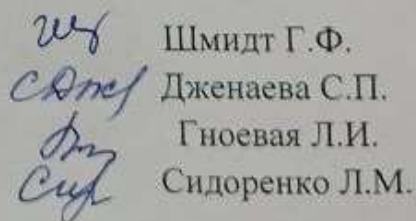 Шмидт Г.Ф.
Дженаева С.П.
Гноевая Л.И.
Сидоренко Л.М.